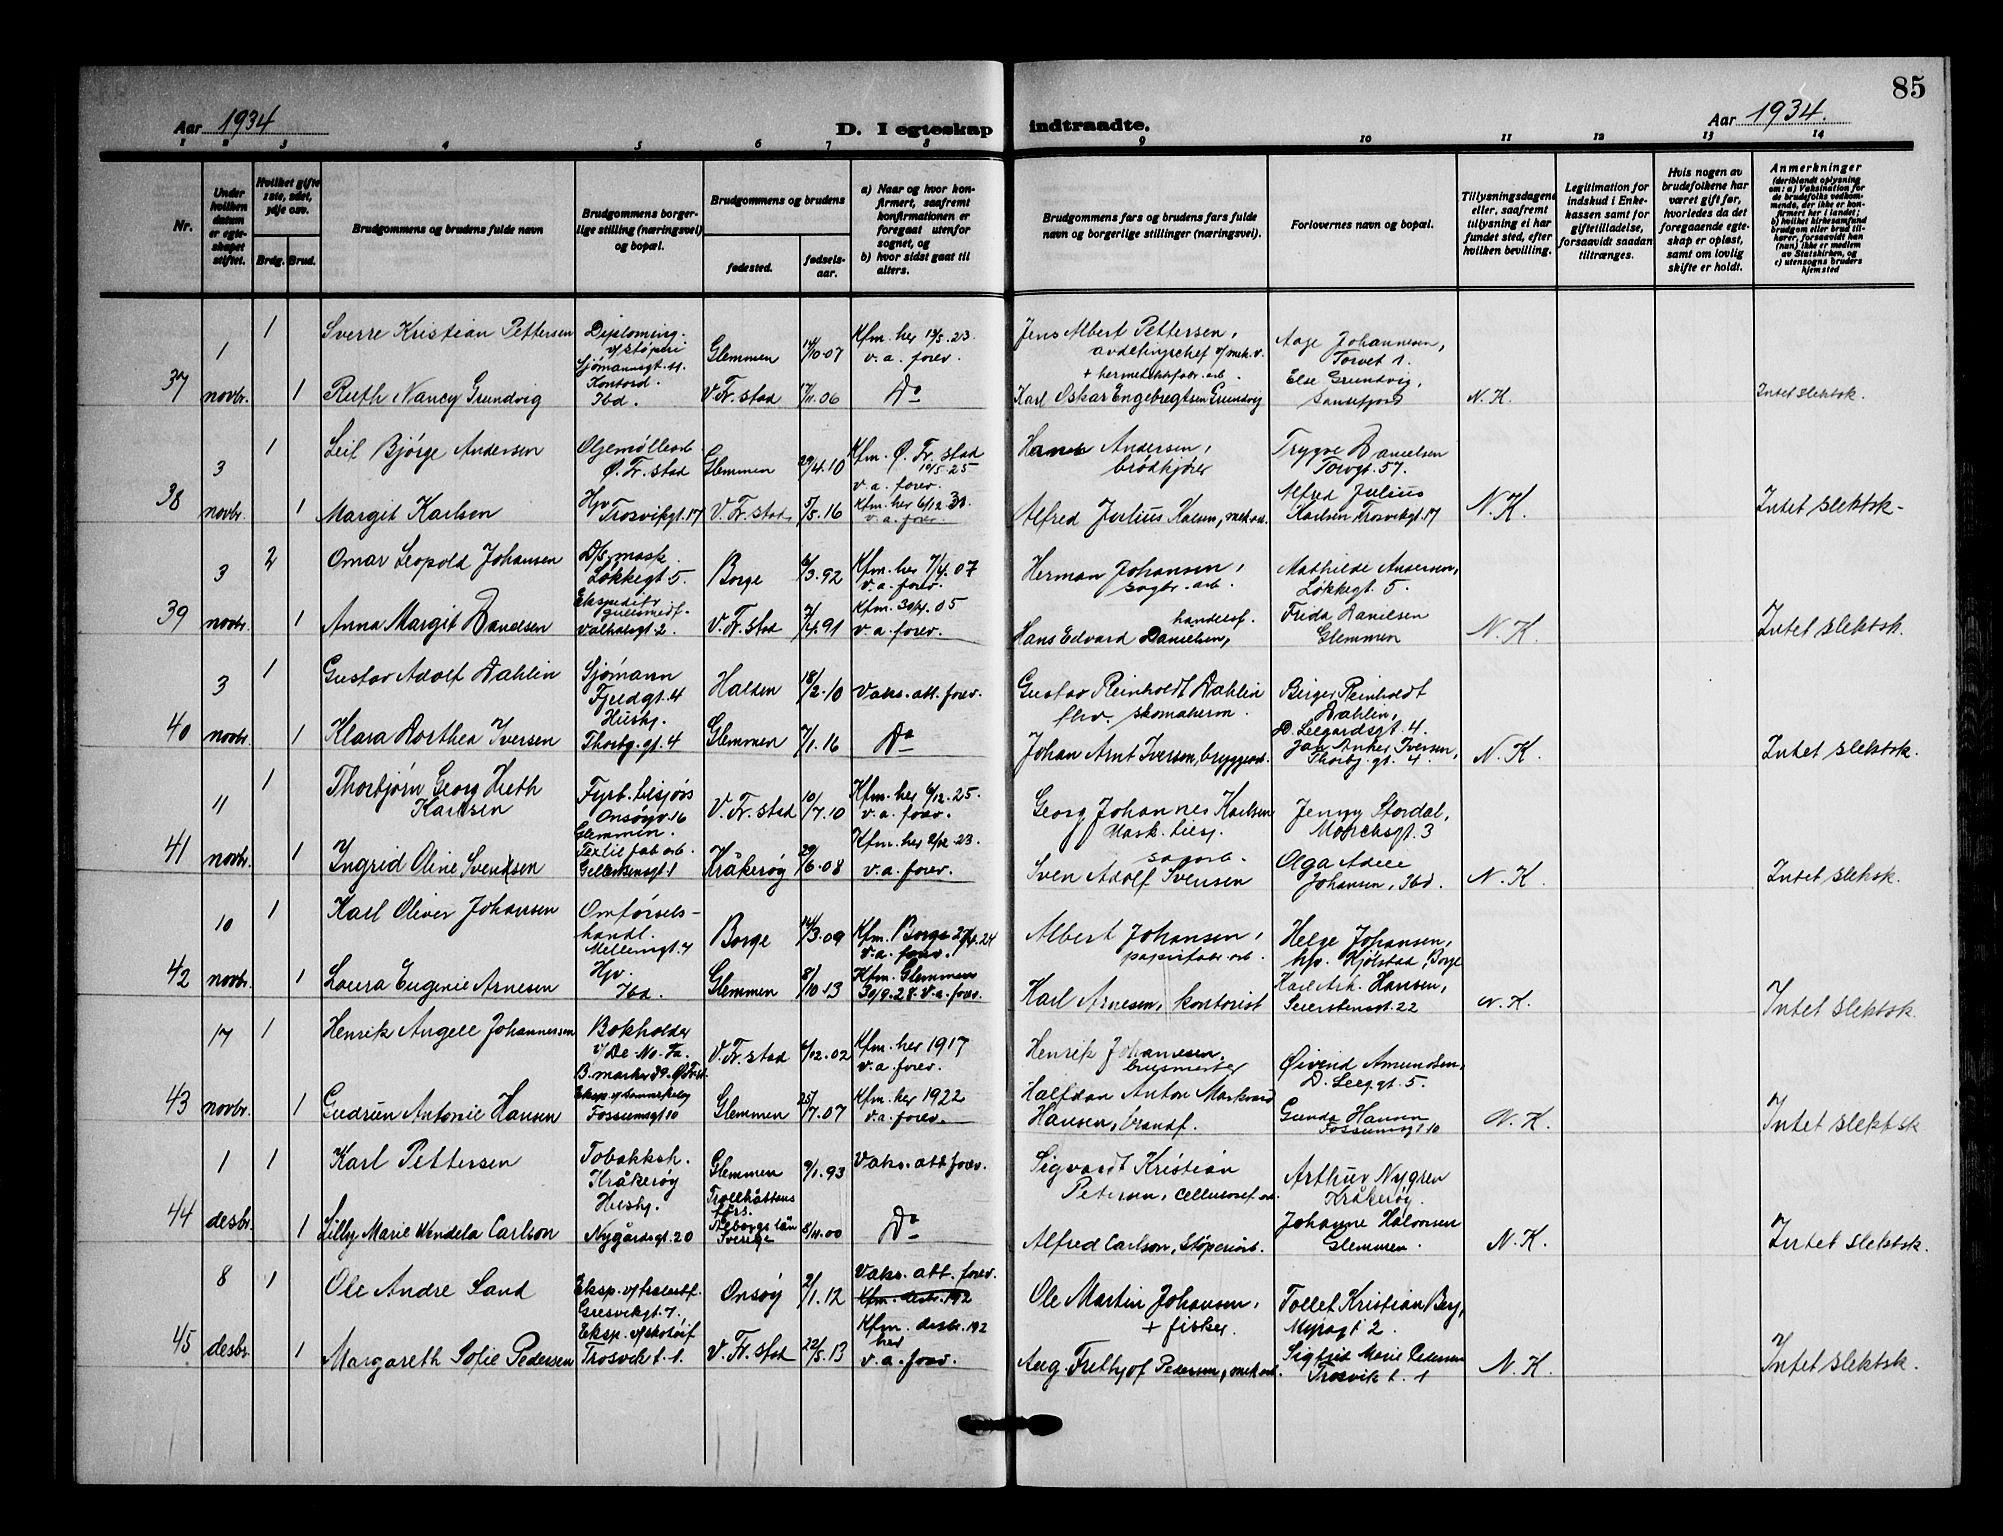 85
Aar 1934
D. I egteskap indtraadte.
Aar 1934.
1 2 3 4 5 6 7 8 9 10 11 12 13 14
Nr.
Under hvilken datum er egteskapet stiftet.
Hvilket gifte 1ste, 2det, 3dje osv.
Brdg. Brud.
Brudgommens og brudens fulde navn
Brudgommens borgerlige stilling (næringsvei) og bopæl.
Brudgommens og brudens
fødested.
fødselsaar.
a) Naar og hvor konfirmert, saafremt konfirmationen er foregaat utenfor sognet, og
b) hvor sidst gaat til alters.
Brudgommens fars og brudens fars fulde navn og borgerlige stillinger (næringsvei).
Forlovernes navn og bopæl.
Tillysningsdagene eller, saafremt tillysning ei har fundet sted, efter hvilken bevilling.
Legitimation for indskud i Enkekassen samt for giftetilladelse, forsaavidt saadan tiltrænges.
Hvis nogen av brudefolkene har været gift før, hvorledes da det foregaaende egteskap er opløst, samt om lovlig skifte er holdt.
Anmerkninger
(deriblandt oplysning om: a) Vaksination for de brudefolks vedkommende, der ikke er konfirmert her i landet; b) hvilket kirkesamfund brudgom eller brud tilhører, forsaavidt han (hun) ikke er medlem av Statskirken, og c) utensogns bruders hjemsted
37
1 novbr.
1 Sverre Kristian Pettersen
Diploming. v/støperi Sjømannsgt. 11.
Glemmen 14/10-07
Kfm. her 13/5.23. v. a. forev.
Jens Albert Pettersen, avdelingschef v/mek.v.
Aage Johannesen, Torvet 1.
1 Ruth Nancy Grundvig
Kontord. Ibd.
V. Fr.stad 17/11.06
Do
+ hermetikkfabr. arb. Karl Oskar Engebregtsen Grundvig
Else Grundvig, Sandefjord
N. K.
Intet slektsk.
38
3 novbr.
1 Leif Bjørge Andersen
Oljemøllearb. Ø. Fr. stad
Glemmen 29/4.10
Kfm. Ø. Fr. stad 10/5-25 v. a. forev.
Hans Andersen, brødkjører
Trygve Danielsen Torvgt. 57.
1 Margit Karlsen
Hjv. Trosvikgt. 17
V. Fr. stad. 5/5.16
Kfm. her 6/12.31. v. a. forev.
Alfred Julius Kalsen, mek.arb.
Alfred Julius Karlsen Trosvikgt. 17
N. K.
Intet slektsk-
39
3 novbr.
2 Omar Leopold Johansen
D/S mask. Løkkegt 5.
Borge 6/3.92
Kfm. her 7/4.07 v. a. forev.
Herman Johansen, sagbr. arb.
Mathilde Andersen, Løkkegt. 5.
1 Anna Margit Danielsen
Ekspeditr. gullsmedf. Valhalsgt. 2.
V. Fr. stad 7/4.91
Kfm. 30/4. 05 v. a. forev.
Hans Edvard Danielsen, handelsf.
Frida Danielsen Glemmen
N. K.
Intet slektsk.
40
3 novbr.
1 Gustav Adolf Dahlin
Sjømann Fjeldgt. 4
Halden 18/2-10
Vaks. att. forev.
Gustav Reinholdt Dahlin fhv. skomakerm.
Birger Reinholdt Dahlin, D. Leegardsgt. 4.
1 Klara Dorthea Iversen
Hushj. Thorbj. gt. 4
Glemmen 7/1.16
Do
Johan Arnt Iversen, bryggearb.
Joh. Anker Iversen, Thorbj. gt. 4.
N. K.
Intet slektsk.
41
4 novbr.
1 Thorbjørn Georg Hieth Karlsen
Fyrb. tilsjøs Onsøyv. 16 Glemmen.
V. Fr. stad 10/7.10
Kfm. her 6/12.25. v. a. forev.
Georg Johannes Karlsen Mask. tilsj.
Jenny Stordal, Monchsgt. 3
1 Ingrid Oline Svendsen
Textil fab. arb.
Kråkerøy 29/6.08
Kfm. her 2/12.23. v. a. forev.
Sven Adolf Svensen sagarb.
Olga Adele Johansen, Ibd.
N. K.
Intet slektsk.
42
10 novbr.
1 Karl Oliver Johansen
Omførselshandl. Mellemgt. 7
Borge 14/3.09
Kfm. Borge 27/4.24 v. a. forev.
Albert Johansen, papirfabr. arb.
Helge Johansen, Kjølstad, Borge
1 Laura Eugenie Arnesen
Hjv. Ibd.
Glemmen 8/10.13
Kfm. Glemmen 30/9.28. v. a. forev.
Karl Arnesen, kontorist
Karl Arh. Hansen, Seierstensgt. 22
N. K.
Intet slektsk.
43
17 novbr.
1 Henrik Angell Johannessen
Bokholder v/De-No-Fa. B. marken 39. Ø. Frst.
V. Fr. stad 6/12.02
Kfm. her 1917 v. a. forev.
Henrik Johannesen,
Øivind Amundsen, D. Leeg. gt. 5.
1 Gudrun Antonie Hansen
Fossumsgt 10
Glemmen 25/7.07
Kfm. her 1922 v. a. forev.
Halfdan Anton Markvard Hansen, brandf.
Gunda Hansen Fossumsgt 10
N. K.
Intet slektsk
44
1 desbr.
1 Karl Pettersen
Tobakksh. Kråkerøy
Glemmen 9/1.93
Vaks. att. forev.
Sigvardt Kristian Petersen, cellulosef. arb.
Arthur Nygren Kråkerøy.
1 Lilly Marie Wendela Carlson
Hushj. Nygårdsgt. 20
Trollhättans förs. Älvborgs län Sverige 8/11.00
Do
Alfred Carlson, støperiarb.
Johanne Halvorsen Glemmen.
N. K.
Intet slektsk.
45
8 desbr.
1 Ole Andre Sand
Gresvikgt. 7.
Onsøy 2/1.12
Vaks. att. forev. Kfm. desbr. 192
Ole Martin Johansen, + fisker.
Tollef Kristian Berg, Myragt 2.
1 Margareth Sofie Pedersen
Eksp. v/skotøif Trosvikt. 1.
V. Fr. stad 22/5.13
Kfm. desbr. 192 her v. a. forev.
Aug. Frethjof Pedersen, mek arb.
Sigfrid Marie Pedersen Trosvik t. 1
N. K.
Intet slektsk.